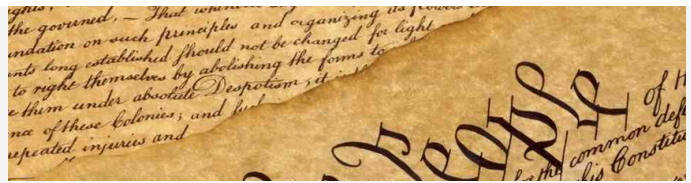 the governed, — That whenev
ndation on such principles and organizing its powers
nts long established should not be changed for light
to right themselves by abolishing the forms to
e them under absolute Despotism, it is
nce of these Colonies; and such
repeated injuries and
People
of
for the common defe
this Constitu